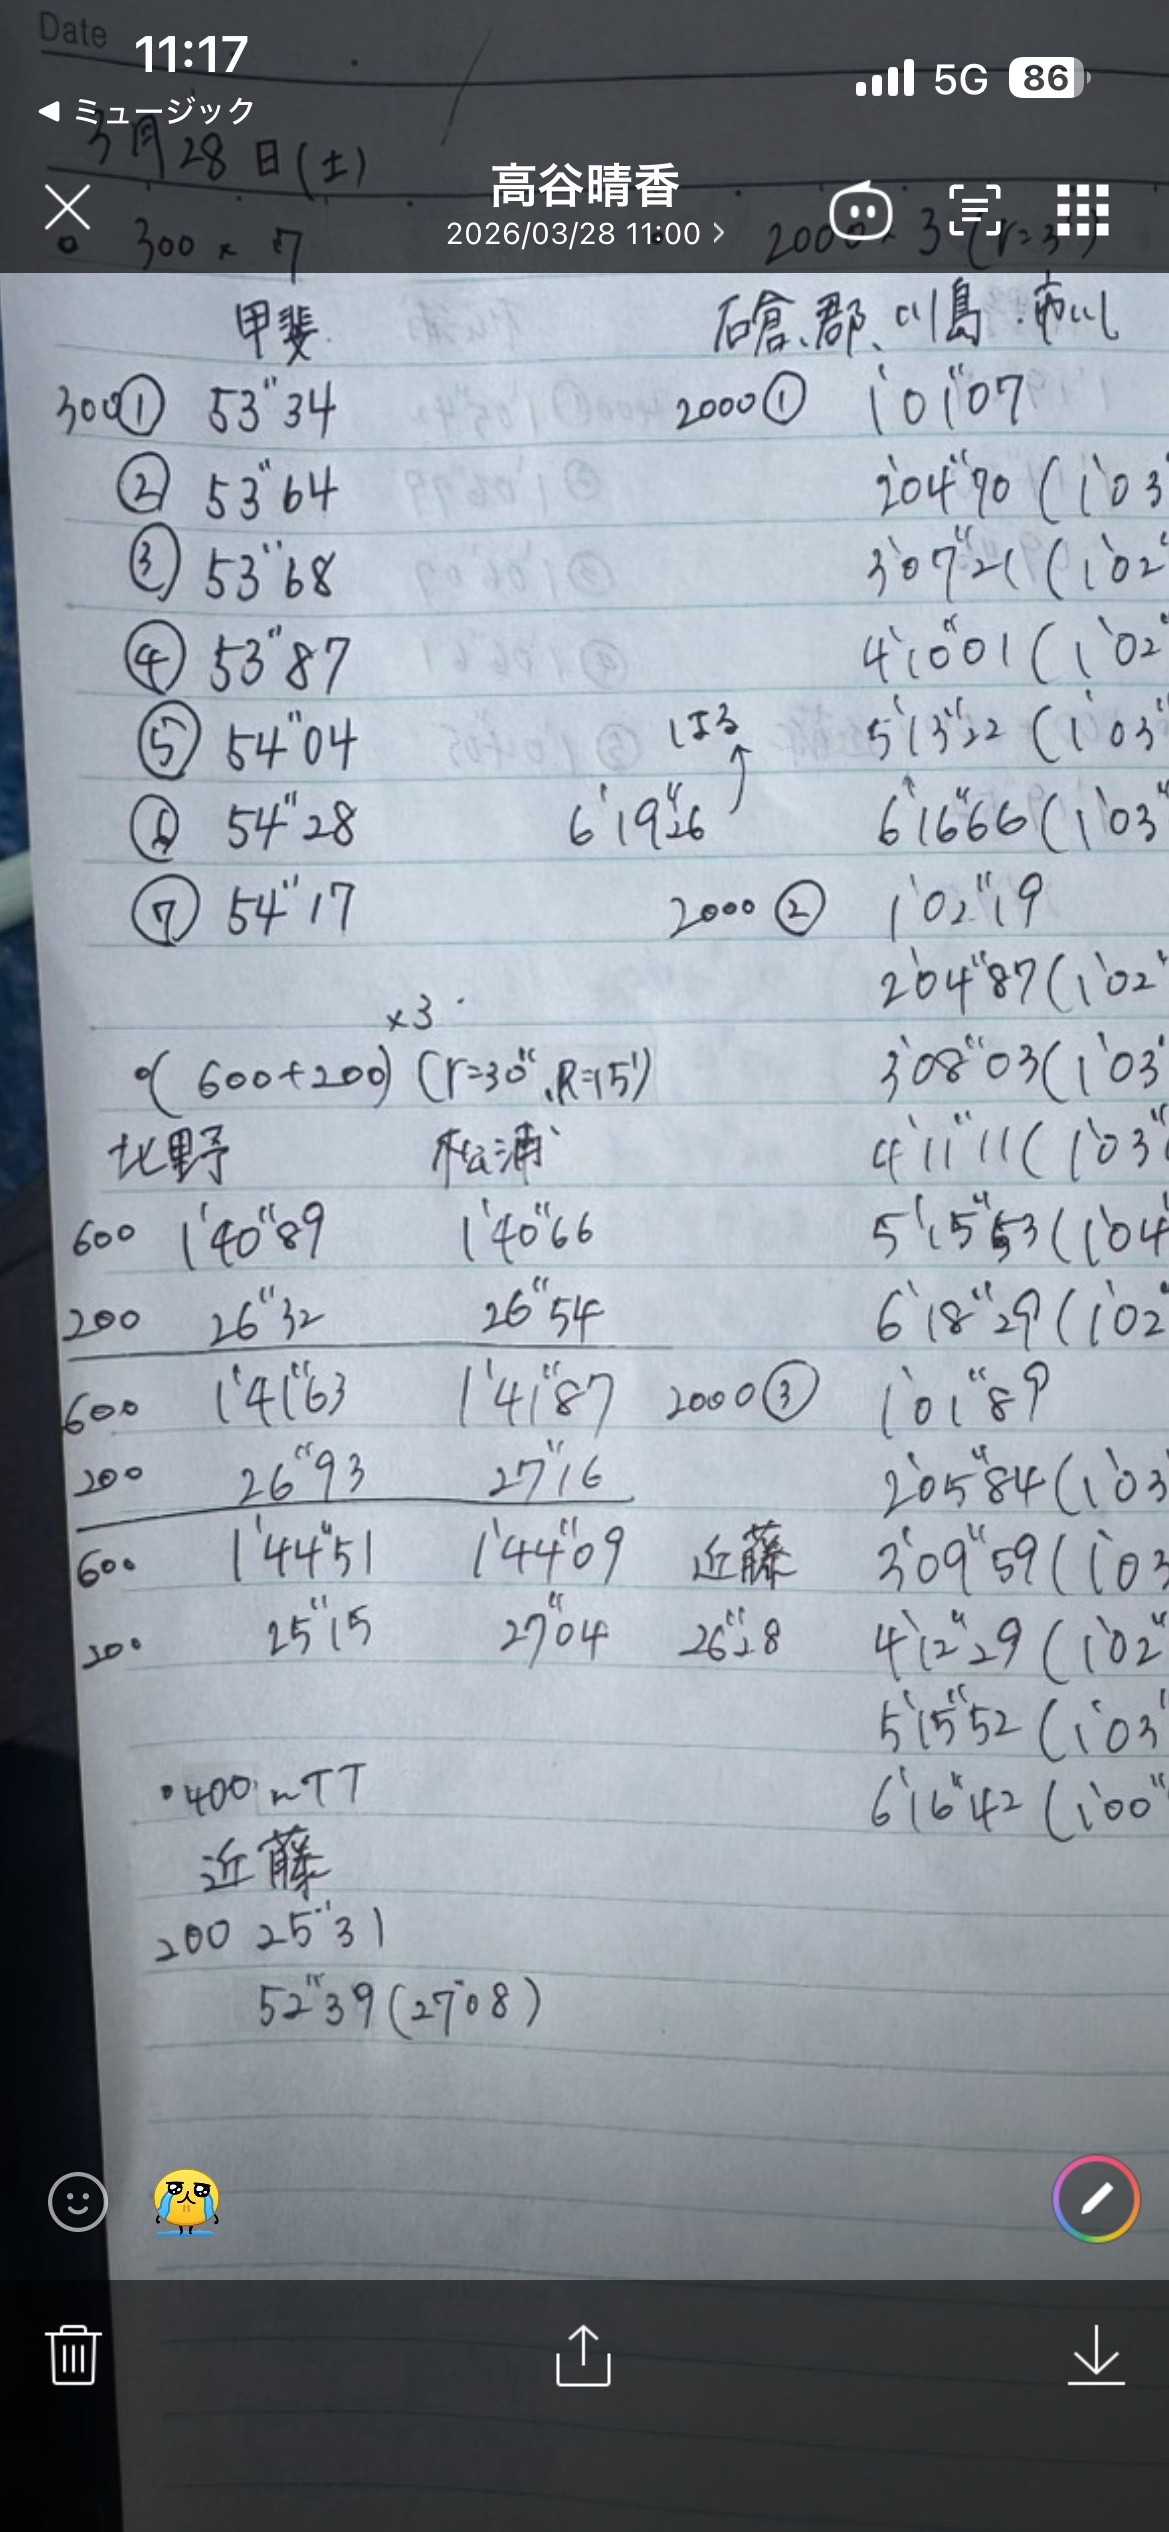 Date
11:17
5G 86
◀ ミュージック
3月28日(土)
高谷晴香
2026/03/28 11:00 >
300 × 7
甲斐
300① 53"34
② 53"64
③ 53"68
④ 53"87
⑤ 54"04
⑥ 54"28
⑦ 54"17
×3
(600+200) (r=30", R=15')
北野 松浦
600 1'40"89 1'40"66
200 26"32 26"54
600 1'41"63 1'41"87
200 26"93 27"16
600 1'44"51 1'44"09 近藤
200 25"15 27"04 26"28
・400mTT
近藤
200 25"31
52"39(27"08)
2000 × 3 (r=3')
石倉、郡、川島
2000① 1'01"07
2'04"70 (1'03
3'07"21 (1'02"
4'10"01 (1'02"
はる 5'13"22 (1'03"
6'19"26 6'16"66 (1'03"
2000② 1'02"19
2'04"87 (1'02"
3'08"03 (1'03"
4'11"11 (1'03"
5'15"53 (1'04
6'18"29 (1'02
2000③ 1'01"89
2'05"84 (1'03
3'09"59 (1'03
4'12"29 (1'02"
5'15"52 (1'03"
6'16"42 (1'00"